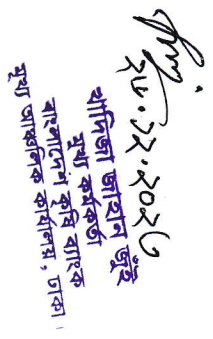 ২৮.১২.২০২৩
খাদিজা জাহান জুঁই
মুখ্য কর্মকর্তা
বাংলাদেশ কৃষি ব্যাংক
মুখ্য আঞ্চলিক কার্যালয়, ঢাকা।